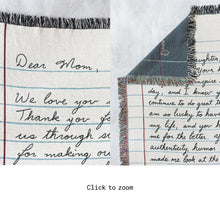 Dear Mom,
We love you
Thank you
us through s
for making ou
ghter,
Your
day, and I know
continue to do great
am so lucky to have
my life, and you
me for the better.
authenticity, humor
made me look at the
Click to zoom